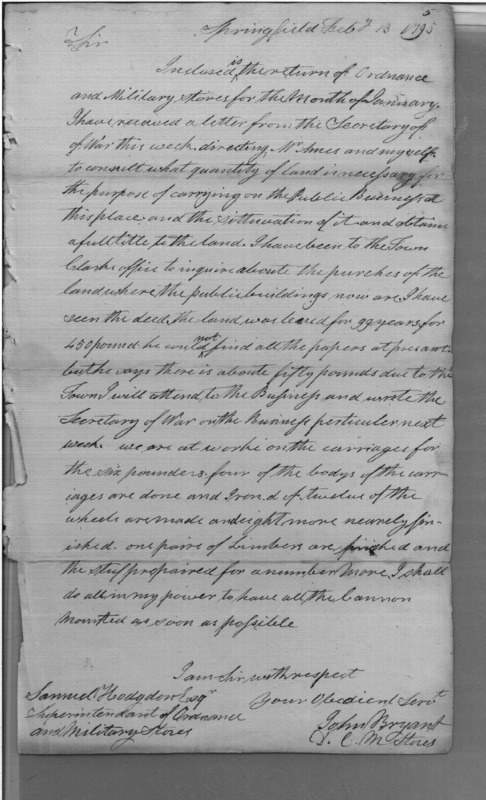 5
Springfield Feby 13 1795
Sir
Inclosed is the return of Ordnance
and Military stores for the Month of January.
I have received a letter from the Secretary of
of War this week directing Mr Ames and myself
to consult what quantity of land is necessary for
the purpose of carrying on the Public Business at
this place and the sittuvation of it and obtain
a full title to the land. I have been to the Town
Clarks office to inquire aboute the purches of the
land where the Public buildings now are I have
seen the deed, the land was leased for 99 years for
450 pound he could not find all the papers at presant
but he says there is aboute fifty pounds due to the
Town I will attend to the Business and wrote the
Secretary of War on the business perticuler next
week we are at worke on the carriages for
the six pounders. four of the bodys of the car-
iages are done and Iron.d of twelve of the
wheels are made and eight more nearely fin-
ished. one paire of Limbers are finished and
the stuf prepaired for a number more, I shall
do all in my power to have all the Cannon
mounted as soon as possible
I am Sir, with respect
Your Obedient Servt
John Bryant
D. C. M Stores
Samuel Hodgdon Esqr
Superintendant of Ordnance
and Military Stores